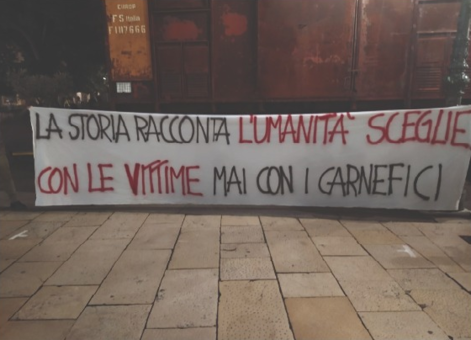 CARRO
FS Italia
F 1117666
LA STORIA RACCONTA L'UMANITA' SCEGLIE
CON LE VITTIME MAI CON I CARNEFICI